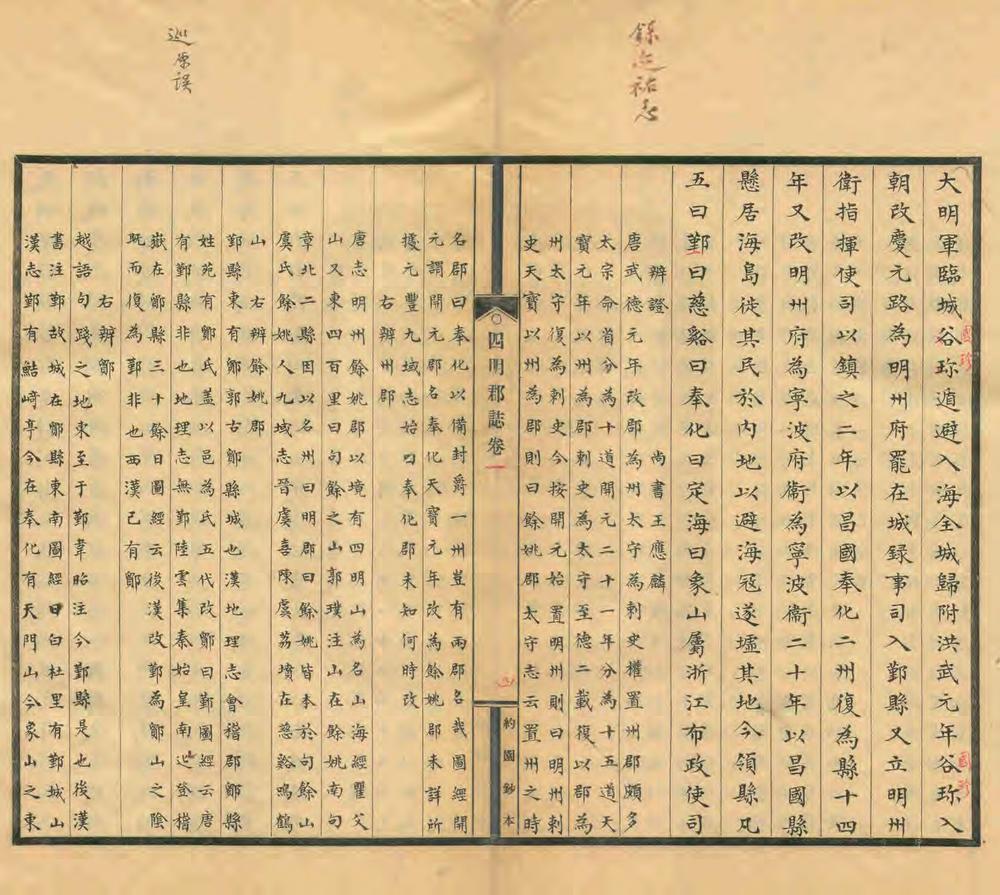 錄延祐志
大明軍臨城谷珎遁避入海全城歸附洪武元年谷珎入
國珍
國珍
朝改慶元路為明州府罷在城録事司入鄞縣又立明州
衛指揮使司以鎮之二年以昌國奉化二州復為縣十四
年又改明州府為寧波府衛為寧波衛二十年以昌國縣
懸居海島徙其民於內地以避海冦遂墟其地今領縣凡
五曰鄞曰慈谿曰奉化曰定海曰象山屬浙江布政使司
辨證 尚書王應麟
唐武德元年改郡為州太守為刺史權置州郡頗多
太宗命省分為十道開元二十一年分為十五道天
寶元年以州為郡刺史為太守至德二載復以郡為
州太守復為刺史今按開元始置明州則曰明州刺
史天寶以州為郡則曰餘姚郡太守志云置州之時
四明郡誌卷一
約園鈔本
名郡曰奉化以備封爵一州豈有兩郡名哉圖經開
元謂開元郡名奉化天寶元年改為餘姚郡未詳所
據元豐九域志始曰奉化郡未知何時改
右辨州郡
唐志明州餘姚郡以境有四明山為名山海經瞿父
山又東四百里曰句餘之山郭璞注山在餘姚南句
章北二縣因以名州曰明郡曰餘姚皆本於句餘山
虞氏餘姚人九域志晉虞喜陳虞荔墳在慈谿鳴鶴
山 右辨餘姚郡
鄞縣東有鄮郭古鄮縣城也漢地理志會稽郡鄮縣
姓苑有鄮氏盖以邑為氏五代改鄮曰鄞圖經云唐
有鄞縣非也地理志無鄞陸雲集秦始皇南巡登稽
嶽在鄮縣三十餘日圖經云後漢改鄞為鄮山之陰
既而復為鄞非也西漢已有鄮
右辨鄮
越語句踐之地東至于鄞韋昭注今鄞縣是也後漢
書注鄞故城在鄮縣東南圖經曰白杜里有鄞城山
漢志鄞有鮚崎亭今在奉化有天門山今象山之東
巡原誤